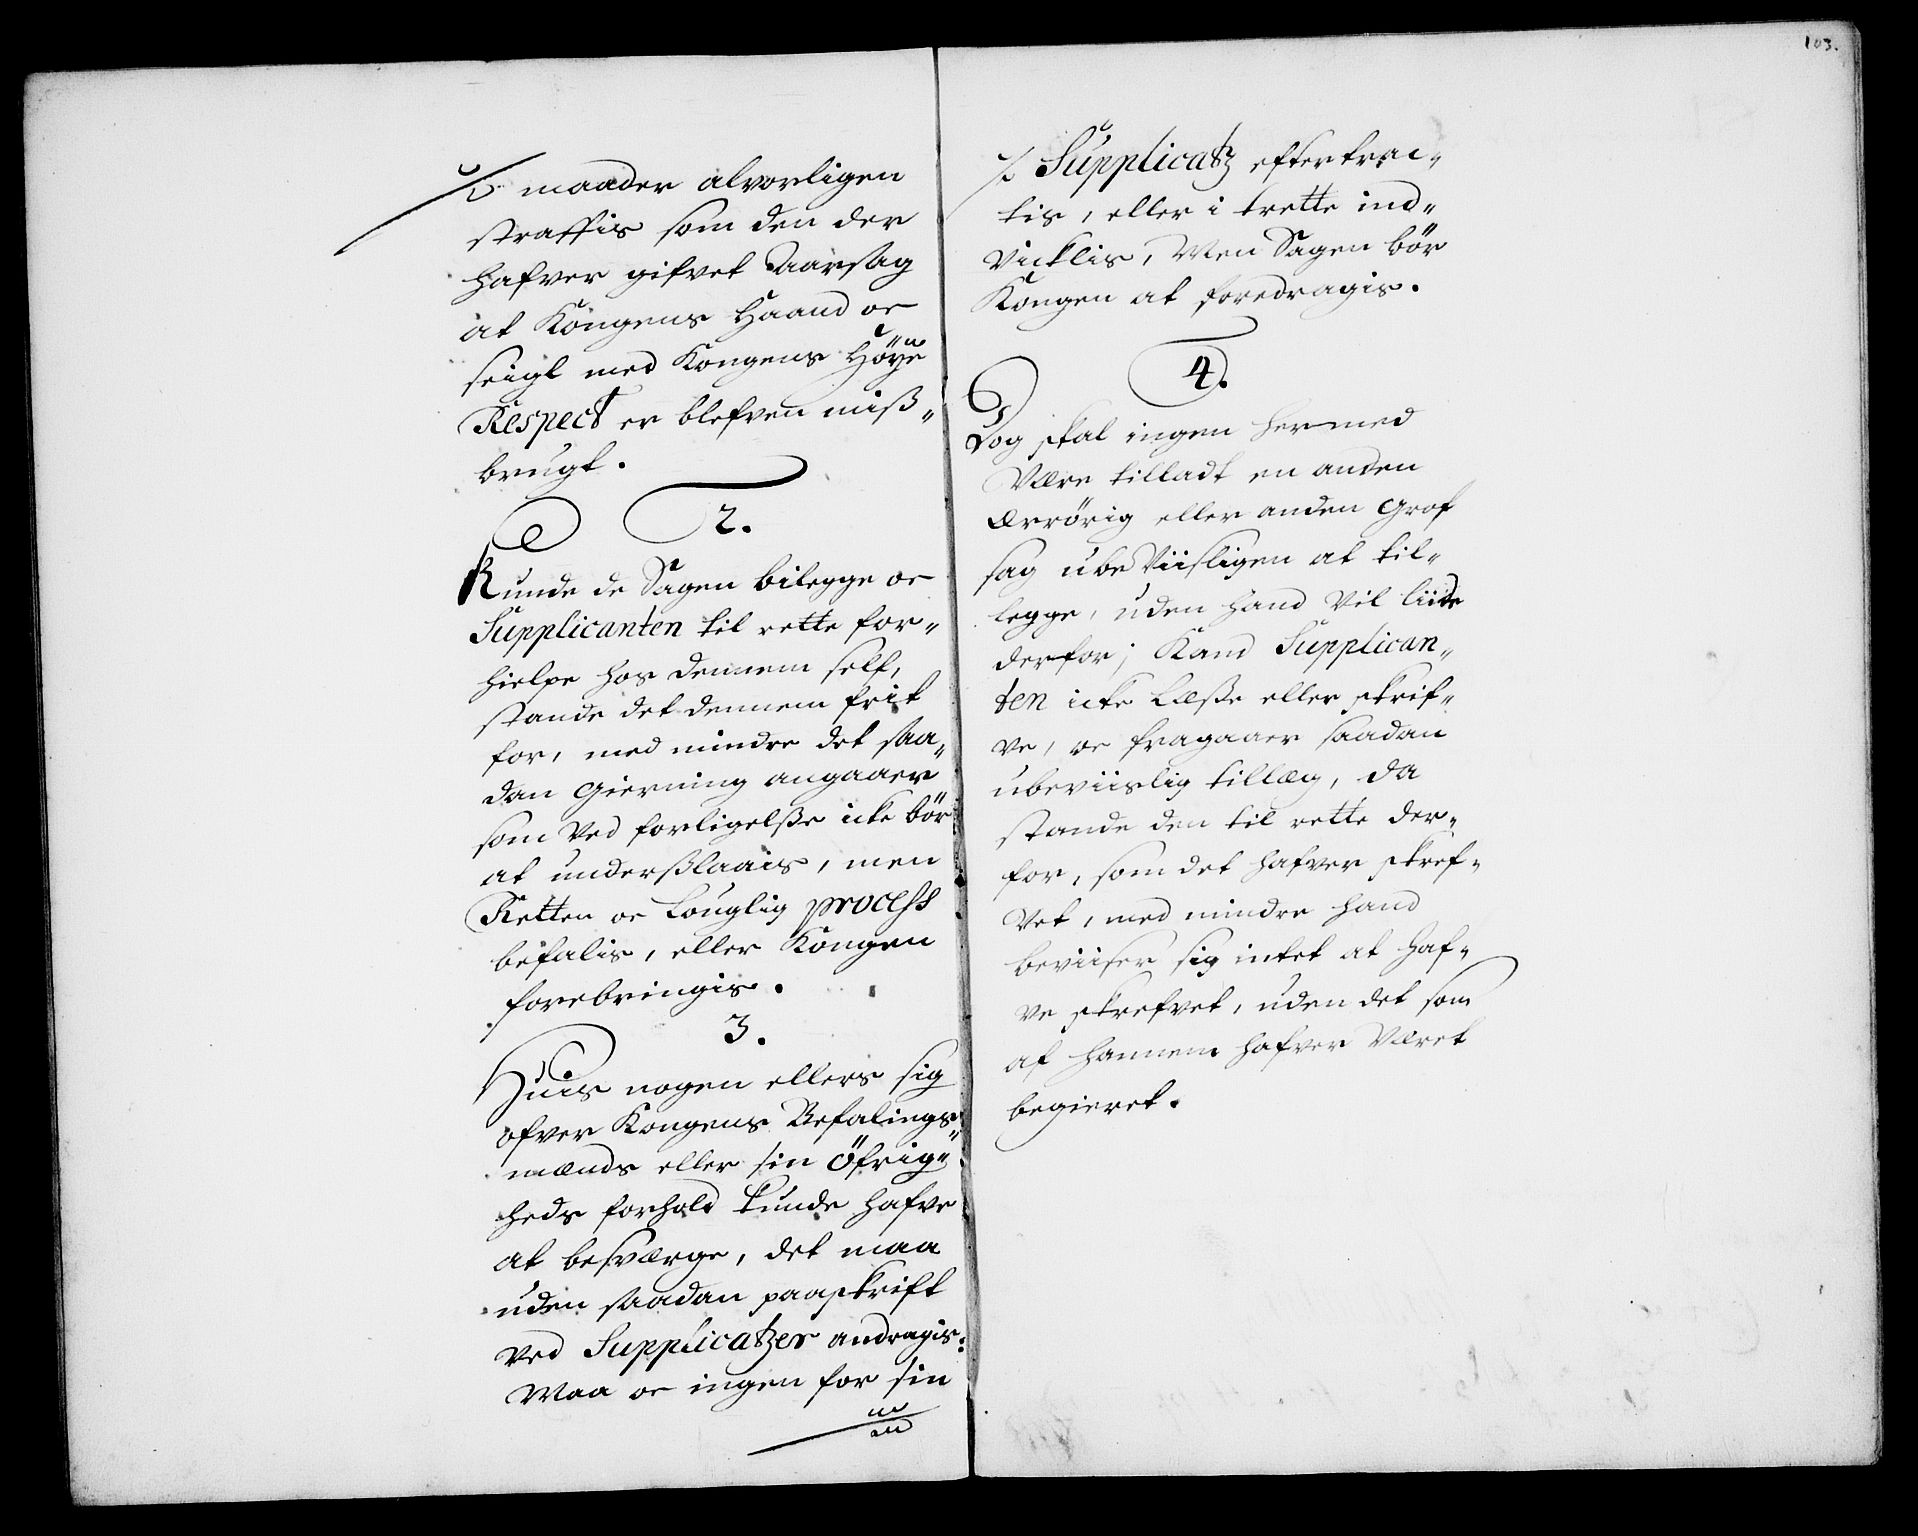 maader alvorligen
straffis som den der
hafver gifvet Aarsag
at Kongens Haand oc
seigl med Kongens Höÿe
Respect er blefven miß„
brugt.
2.
Kunde de Sagen bilegge oc
Supplicanten til rette for„
hielpe hos dennem self,
stande det dennem frit
for, med mindre det saa„
dan Gierning angaaer
som Ved forligelße icke bör
at underßlaais, men
Retten oc Louglig process
befalis, eller Kongen
forebringis.
3.
Huis nogen ellers sig
ofver Kongens Befalings„
mænds eller sin Öfrig„
heds forhold kunde hafve
at besværge, det maa
uden saadan paaskrift
Ved Supplicatzer andragis:
Maa oc ingen for sin
103.
Supplicatz eftertrac„
tis, eller i trette ind„
Vicklis, Men Sagen bör
Kongen at foredragis.
4.
Dog skal ingen hermed
Være tilladt en anden
ærrörig eller anden Grof
sag ube Viisligen at til„
legge, uden hand Vil liide
derfor; Kand Supplican„
ten icke Læße eller skrif„
ve, oc fragaaer saadan
ubeviislig tillæg, da
stande den til rette der„
for, som det hafver skref„
Vet, med mindre hand
beviiser sig intet at haf„
ve skrefvet, uden det som
af hannem hafver Været
begieret.